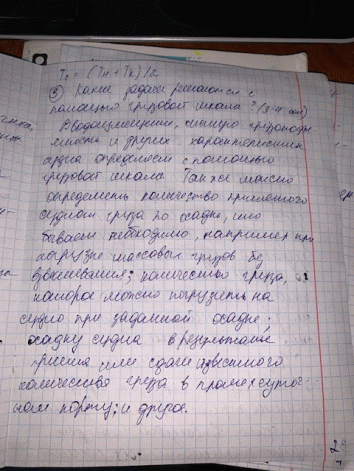 Tс = (Tн + Tк)/2
③ Какие задачи решаются с
помощью грузовой шкалы? (3-4 )
Водоизмещение, чистую грузоподъ
ёмность и другие характеристики
судна определяют с помощью
грузовой шкалы. Также можно
определять количество принятого
судном груза по осадке, что
бывает необходимо, например при
погрузке массовых грузов без
взвешивания; количество груза,
которое можно погрузить на
судно при заданной осадке;
осадку судна в результате
приёма или сдачи известного
количества груза в промежуточ
ном порту; и другое.